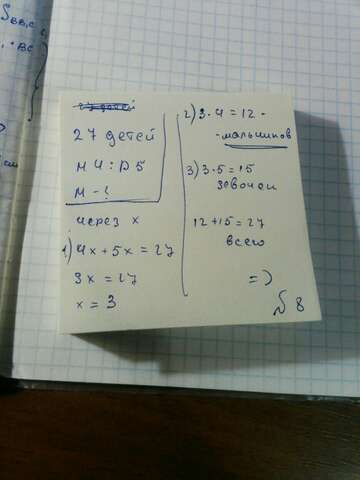 27 детей
м 4 : д 5
м - ?
через x
1) 4x + 5x = 27
9x = 27
x = 3
2) 3 · 4 = 12 -
- мальчиков
3) 3 · 5 = 15
девочек
12 + 15 = 27
всего
=)
№ 8